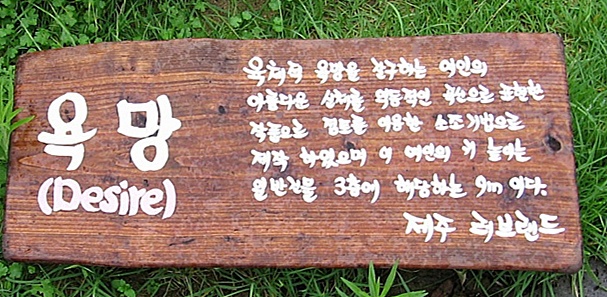 욕망
(Desire)
육체적 욕망을 갈구하는 여인의
아름다운 상체를 역동적인 곡선으로 표현한
작품으로 점토를 이용한 소조기법으로
제작 하였으며 이 여인의 키 높이는
일반건물 3층에 해당하는 9m 이다.
제주 러브랜드